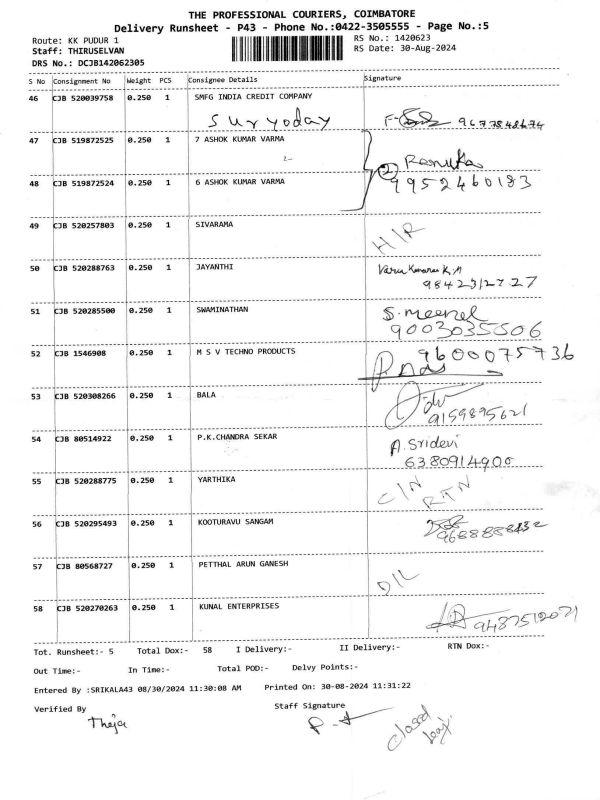 THE PROFESSIONAL COURIERS, COIMBATORE
Delivery Runsheet - P43 - Phone No.:0422-3505555 - Page No.:5
Route: KK PUDUR 1 RS No.: 1420623
Staff: THIRUSELVAN RS Date: 30-Aug-2024
DRS No.: DCJB142062305
S No Consignment No Weight PCS Consignee Details Signature
46 CJB 520039758 0.250 1 SMFG INDIA CREDIT COMPANY
Suryoday
47 CJB 519872525 0.250 1 7 ASHOK KUMAR VARMA
2 Renuka
48 CJB 519872524 0.250 1 6 ASHOK KUMAR VARMA 9952460183
49 CJB 520257803 0.250 1 SIVARAMA
50 CJB 520288763 0.250 1 JAYANTHI
9842312727
51 CJB 520285500 0.250 1 SWAMINATHAN S. meenel
9003035506
52 CJB 1546908 0.250 1 M S V TECHNO PRODUCTS 9600075736
53 CJB 520308266 0.250 1 BALA
9159895621
54 CJB 80514922 0.250 1 P.K.CHANDRA SEKAR A. Sridevi
6380914900
55 CJB 520288775 0.250 1 YARTHIKA C/N RTN
56 CJB 520295493 0.250 1 KOOTURAVU SANGAM
57 CJB 80568727 0.250 1 PETTHAL ARUN GANESH D/L
58 CJB 520270263 0.250 1 KUNAL ENTERPRISES
Tot. Runsheet:- 5 Total Dox:- 58 I Delivery:- II Delivery:- RTN Dox:-
Out Time:- In Time:- Total POD:- Delvy Points:-
Entered By :SRIKALA43 08/30/2024 11:30:08 AM Printed On: 30-08-2024 11:31:22
Verified By Staff Signature
Theja closed